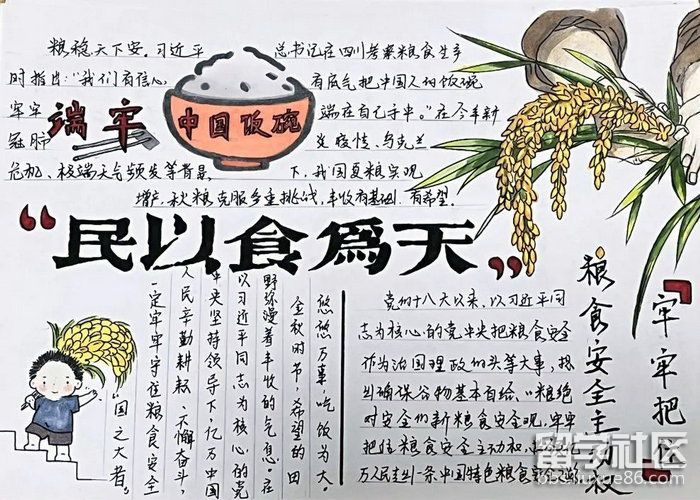 粮稳天下安。习近平总书记在四川考察粮食生产
时指出:"我们有信心、有底气把中国人的饭碗
牢牢端在自己手中。"在今年新
冠肺炎疫情、乌克兰
危机、极端天气频发等背景下,我国夏粮实现
增产,秋粮克服多重挑战,丰收有基础、有希望。
端牢
中国饭碗
"民以食为天"
悠悠万事,吃饭为大。
金秋时节,希望的田
野弥漫着丰收的气息。在
以习近平同志为核心的党
中央坚持领导下,亿万中国
人民辛勤耕耘、不懈奋斗,
一定牢牢守住粮食安全
"国之大者"。
党的十八大以来,以习近平同
志为核心的党中央把粮食安全
作为治国理政的头等大事,提
出确保谷物基本自给、口粮绝
对安全的新粮食安全观,牢牢
把住粮食安全主动权,
万人民走出一条中国特色粮食安全
"牢牢把住
粮食安全主动权
留学社区
bbs.liuxue86.com